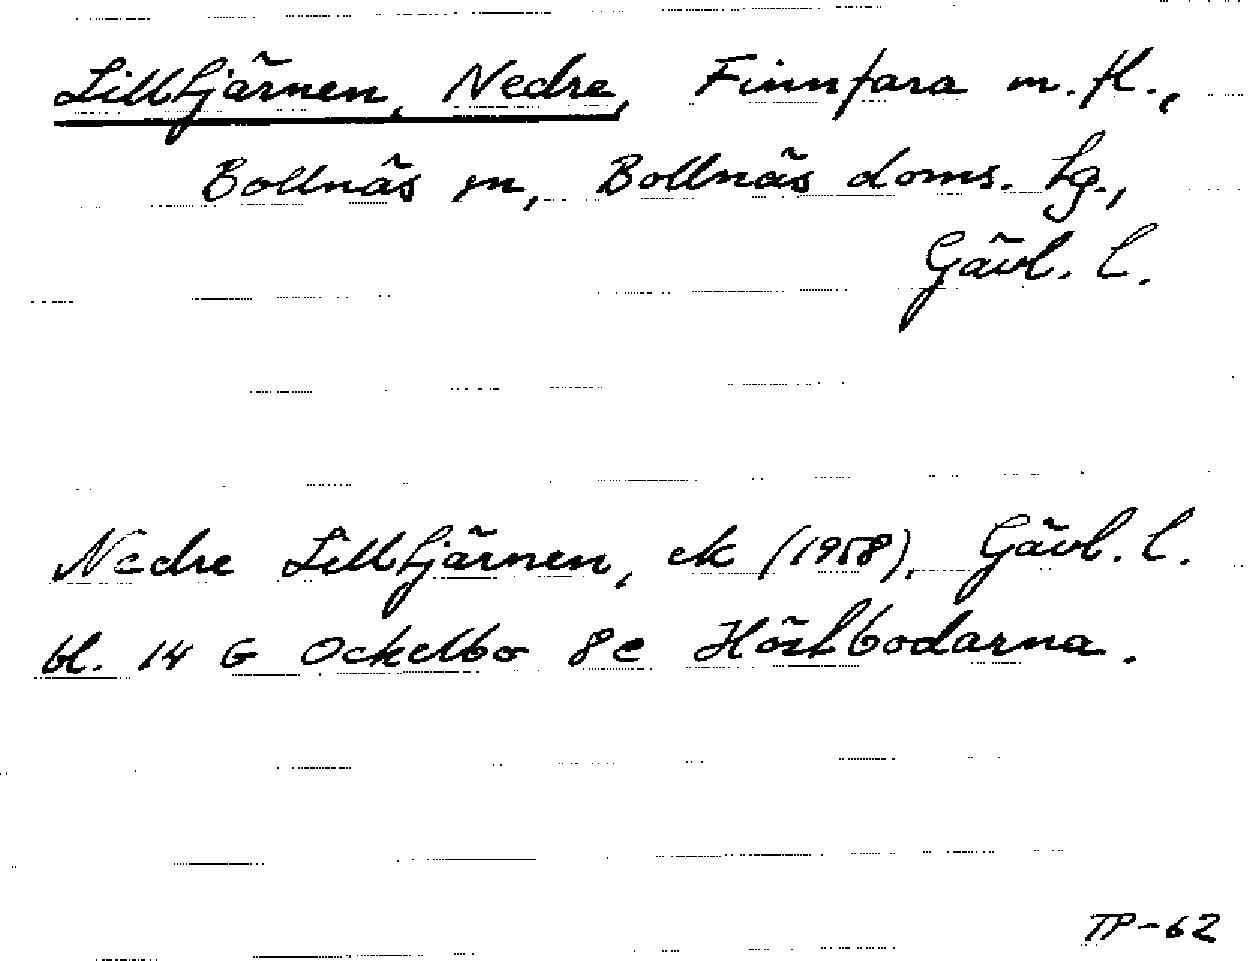 Lilltjärnen, Nedre, Finnfara m.fl.,
Bollnäs sn, Bollnäs doms. tg.,
Gävl. l.
Nedre Lilltjärnen, ek (1958), Gävl. l.
bl. 14 G Ockelbo 8e Höstbodarna.
TP-62